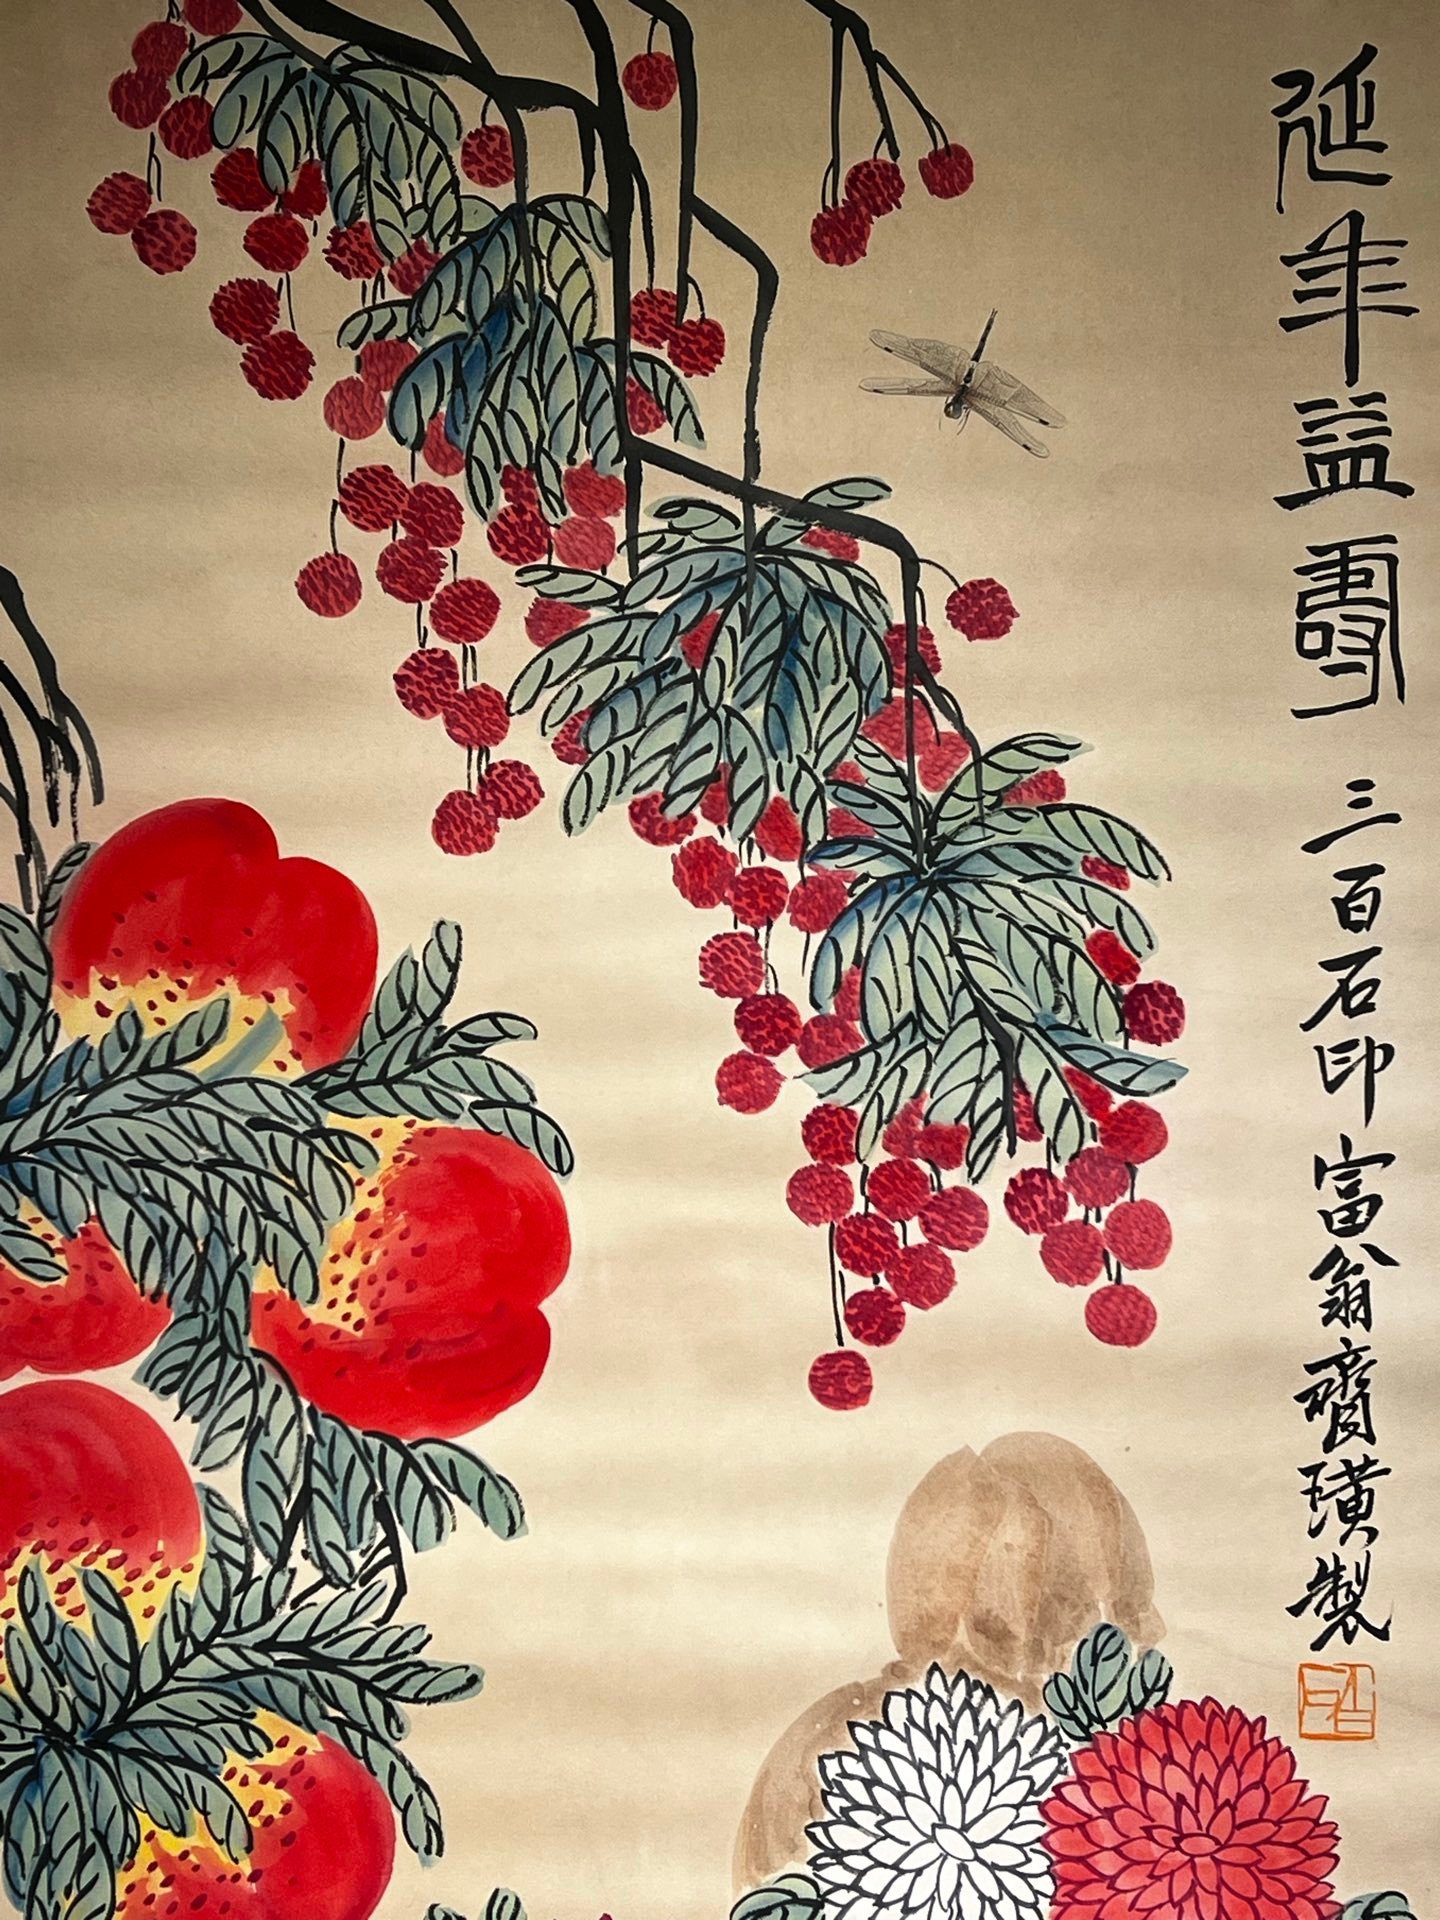 延年益壽
三百石印富翁齊璜製